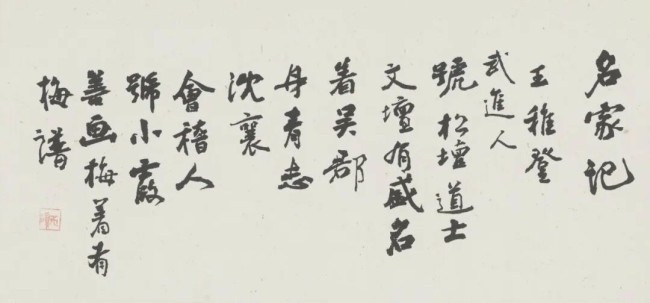 名家记
王稚登
武進人
號松壇道士
文壇有盛名
着吴郡
丹青志
沈襄
會稽人
號小霞
善画梅著有
梅譜